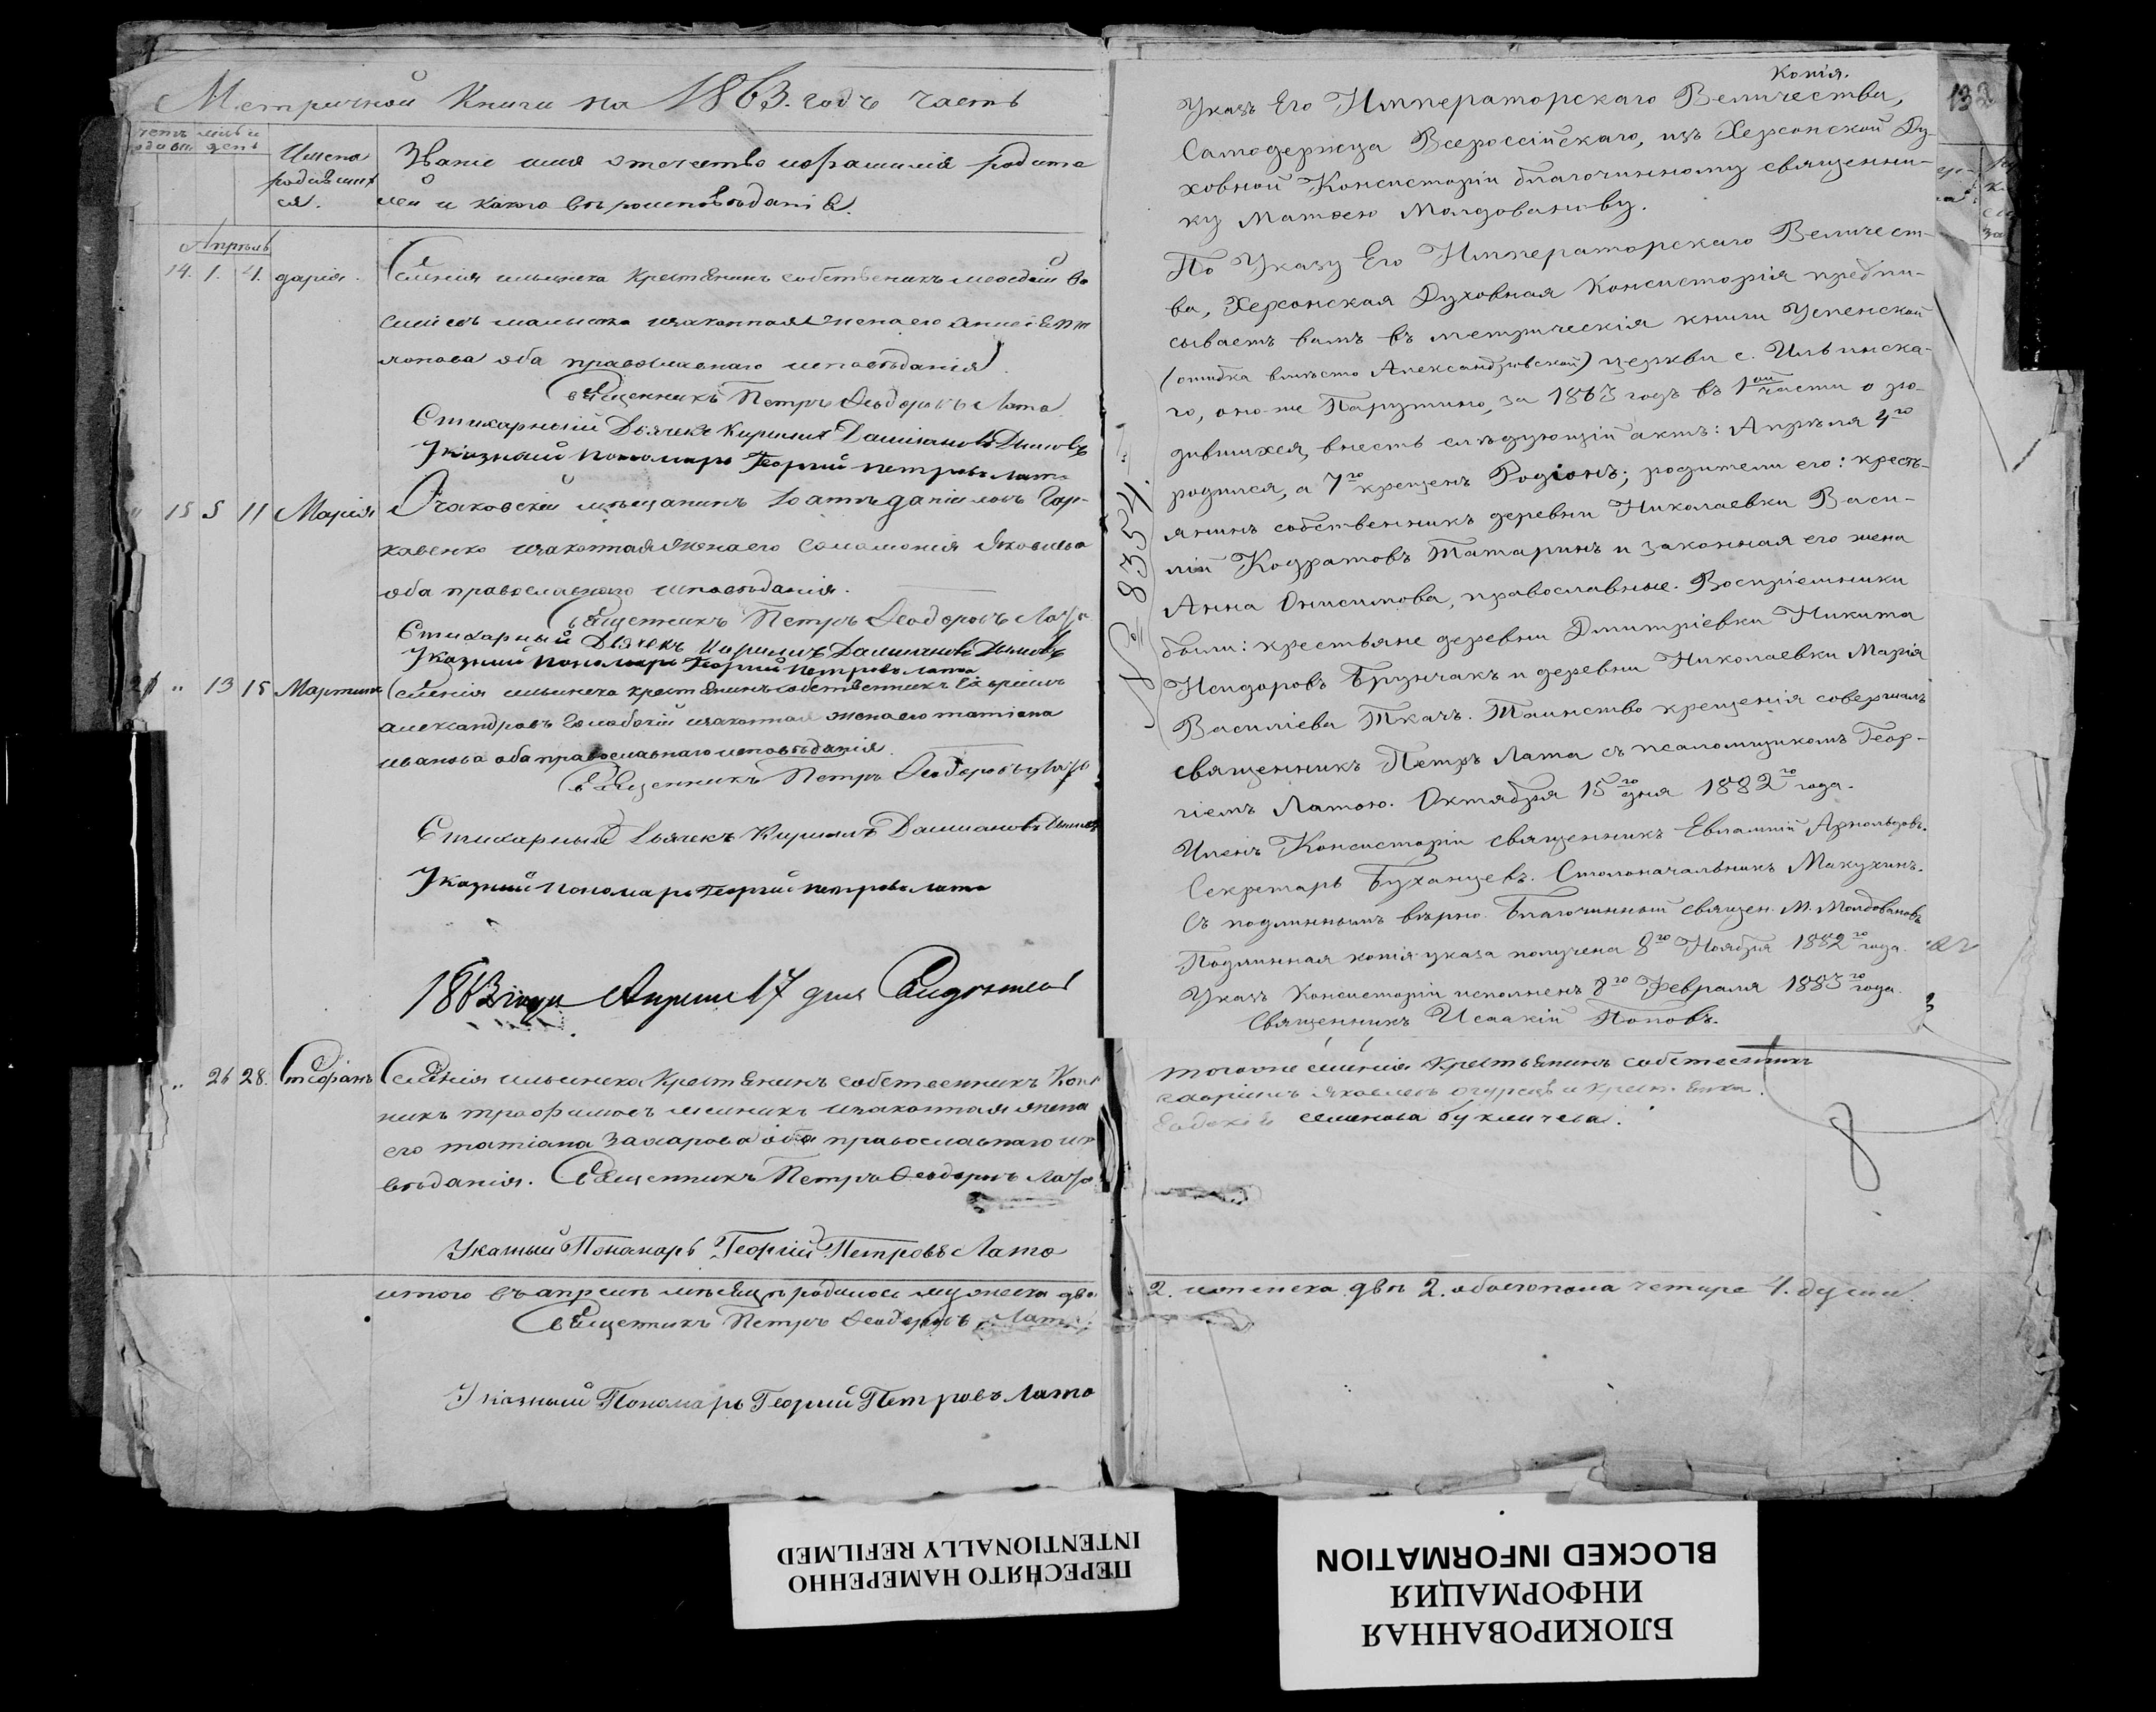 Метричной Книги на 1863. годъ часть
Имена
родивших
ся.
Званіе имя отечество и фамилія родите
лей и какого вѣроисповѣданія.
Апрѣль
14. 1. 4. дарія.
Селенія ильинска крестьянинъ собственикъ
законная жена его
оба православнаго исповѣданія
Священникъ Петръ Феодоровъ Лата
Стихарный Дьячекъ Кирилъ Даміановъ
Указный пономарь Георгій петровъ лата
15 5 11 Марія
Очаковскій мѣщанинъ даніиловъ Гор-
законная жена его Соломонія Яковлева
оба православнаго исповѣданія.
Священникъ Петръ Феодоровъ Лата
Стихарный Дьячекъ Кирилъ Даміановъ
Указный пономарь Георгій петровъ лата
" 13 15 Мартинъ
Селенія ильинска крестьянинъ собственникъ
александровъ законная жена его татіана
иванова оба православнаго исповѣданія.
Священникъ Петръ Феодоровъ Лата
Стихарный Дьячекъ Кирилъ Даміановъ
Указний пономарь Георгий петровъ лата
1863 года Апреля 17 дня
" 26 28. Стефанъ
Селенія ильинска крестьянинъ собственникъ
трофимовъ законная жена
его татіана Захарова оба православнаго испо
вѣданія. Священникъ Петръ Феодоровъ Лата
Указный Пономарь Георгій Петровъ Лата
итого въ апрели мѣсяцѣ родилось мужеска два
Священникъ Петръ Феодоровъ Лата
Указный Пономарь Георгий Петровъ Лата
Копія.
132
Указъ Его Императорскаго Величества,
Самодержца Всероссійскаго, изъ Херсонской Ду-
ховной Консисторіи благочинному священни-
ку Матѳею Молдованову.
По Указу Его Императорскаго Величест-
ва, Херсонская Духовная Консисторія предпи-
сываетъ вамъ въ метрическія книги Успенской
(ошибка вмѣсто Александровской) церкви с. Ильинска-
го, оно-же Парутино, за 1863 годъ въ 1ой части о ро-
дившихся, внесть слѣдующій актъ: Апрѣля 4го
родился, а 7го крещенъ Родіонъ; родители его: кресть-
янинъ собственникъ деревни Николаевки Васи-
лій Кодратовъ Татаринъ и законная его жена
Анна Онисимова, православные. Воспріемники
были: крестьяне деревни Дмитріевки Никита
Исидоровъ Брунчакъ и деревни Николаевки Марія
Василіева Ткачъ. Таинство крещенія совершалъ
священникъ Петръ Лата съ псаломщикомъ Геор-
гіемъ Латою. Октября 15го дня 1882го года.
Членъ Консисторіи священникъ Евлампій Арнольдовъ.
Секретарь Буханцевъ. Столоначальникъ Макухинъ.
Съ подлиннымъ вѣрно. Благочинный священ. М. Молдовановъ
Подлинная копія указа получена 8го Ноября 1882го года.
Указъ Консисторіи исполненъ 8го Февраля 1883го года.
Священникъ Исаакій Поповъ.
№ 8354.
тогоже селенія крестьянинъ собственникъ
яковлевъ
семенова
2. и женска двѣ 2. обоегопола четыре 4. души.
ПЕРЕСНЯТО НАМЕРЕННО
INTENTIONALLY REFILMED
БЛОКИРОВАННАЯ
ИНФОРМАЦИЯ
BLOCKED INFORMATION